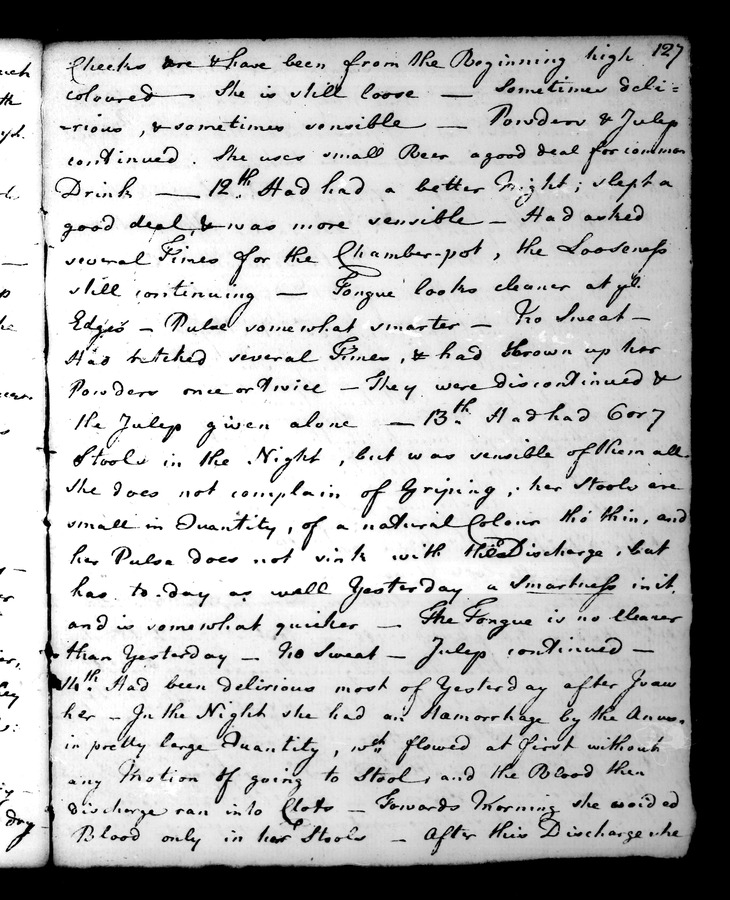 127
Cheeks are & have been from the Beginning high
coloured — She is still loose — Sometimes deli=
-rious, & sometimes sensible — Powders & Julep
continued. She uses small Beer a good deal for common
Drink — 12th. Had had a better Night; slept a
good deal, & was more sensible — Had asked
several Times for the Chamber-pot, the Looseness
still continuing — Tongue looks cleaner at ye.
Edges — Pulse somewhat smarter — No Sweat —
Had retched several Times, & had thrown up her
Powders once or twice — They were discontinued &
the Julep given alone — 13th. Had had 6 or 7
Stools in the Night, but was sensible of them all.
She does not complain of Griping; her Stools are
small in Quantity, of a natural Colour tho' thin, and
her Pulse does not sink with this Discharge, but
has to-day as well Yesterday a Smartness in it,
and is somewhat quicker — The Tongue is no cleaner
than Yesterday — No Sweat — Julep continued —
14th. Had been delirious most of Yesterday after I saw
her — In the Night she had an Hæmorrhage by the Anus,
in pretty large Quantity, wch flowed at first without
any Motion of going to Stool, and the Blood then
discharge ran into Clots — Towards Morning she avoided
Blood only in her Stools — After this Discharge she